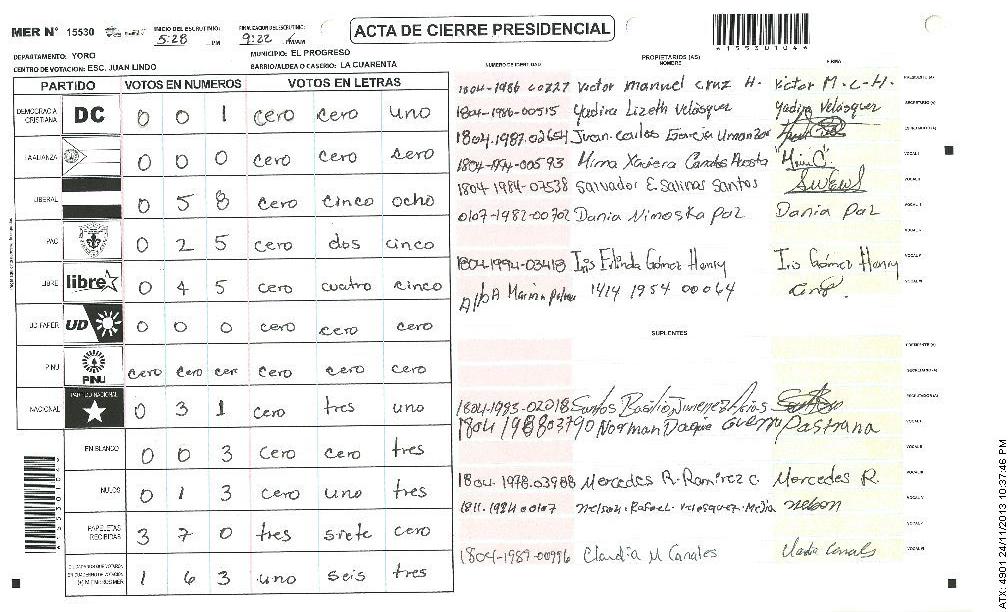 MER Nº 15530
INICIO DEL ESCRUTINIO: 5:28 PM
FINALIZACION DEL ESCRUTINIO: 9:22
ACTA DE CIERRE PRESIDENCIAL
DEPARTAMENTO: YORO
MUNICIPIO: EL PROGRESO
CENTRO DE VOTACION: ESC. JUAN LINDO
BARRIO/ALDEA O CASERIO: LA CUARENTA
PARTIDO VOTOS EN NUMEROS VOTOS EN LETRAS
DEMOCRACIA CRISTIANA DC 0 0 1 cero cero uno
AALIANZA 0 0 0 cero cero cero
LIBERAL 0 5 8 cero cinco ocho
PAC 0 2 5 cero dos cinco
LIBRE libre 0 4 5 cero cuatro cinco
UD FAPER UD 0 0 0 cero cero cero
PINU PINU cero cero cer cero cero cero
NACIONAL PARTIDO NACIONAL 0 3 1 cero tres uno
EN BLANCO 0 0 3 cero cero tres
NULOS 0 1 3 cero uno tres
PAPELETAS RECIBIDAS 3 7 0 tres siete cero
1 6 3 uno seis tres
NUMERO DE IDENTIDAD PROPIETARIOS (AS) NOMBRE FIRMA
1804-1986 00227 Victor Manuel Cruz H. Victor M. C-H.
1804-1986-00515 Yadira Lizeth Velásquez Yadira Velásquez
1804.1987.02654 Juan Carlos Garcia Umanzor
1804-1974-00593 Mirna Xaviera Canales Acosta
1804 1984-07538 Salvador E Salinas Santos
0107-1982-00702 Dania Nimoska Paz Dania Paz
1804-1994-03418 Iris Erlinda Gómez Henry Iris Gómez Henry
Alba Marina 1414 1954 00064
SUPLENTES
1804-1983-02018 Santos Basilio Jimenez Arias
1804 198803790 Norman Daque Guerra Pastrana
1804-1978-03988 Mercedes R. Ramirez C. Mercedes R.
1811-1984 00107 Nelson Rafael Velasquez Mejia nelson
1804-1989-00996 Claudia M Canales
ATX: 4901 24/11/2013 10:37:46 PM